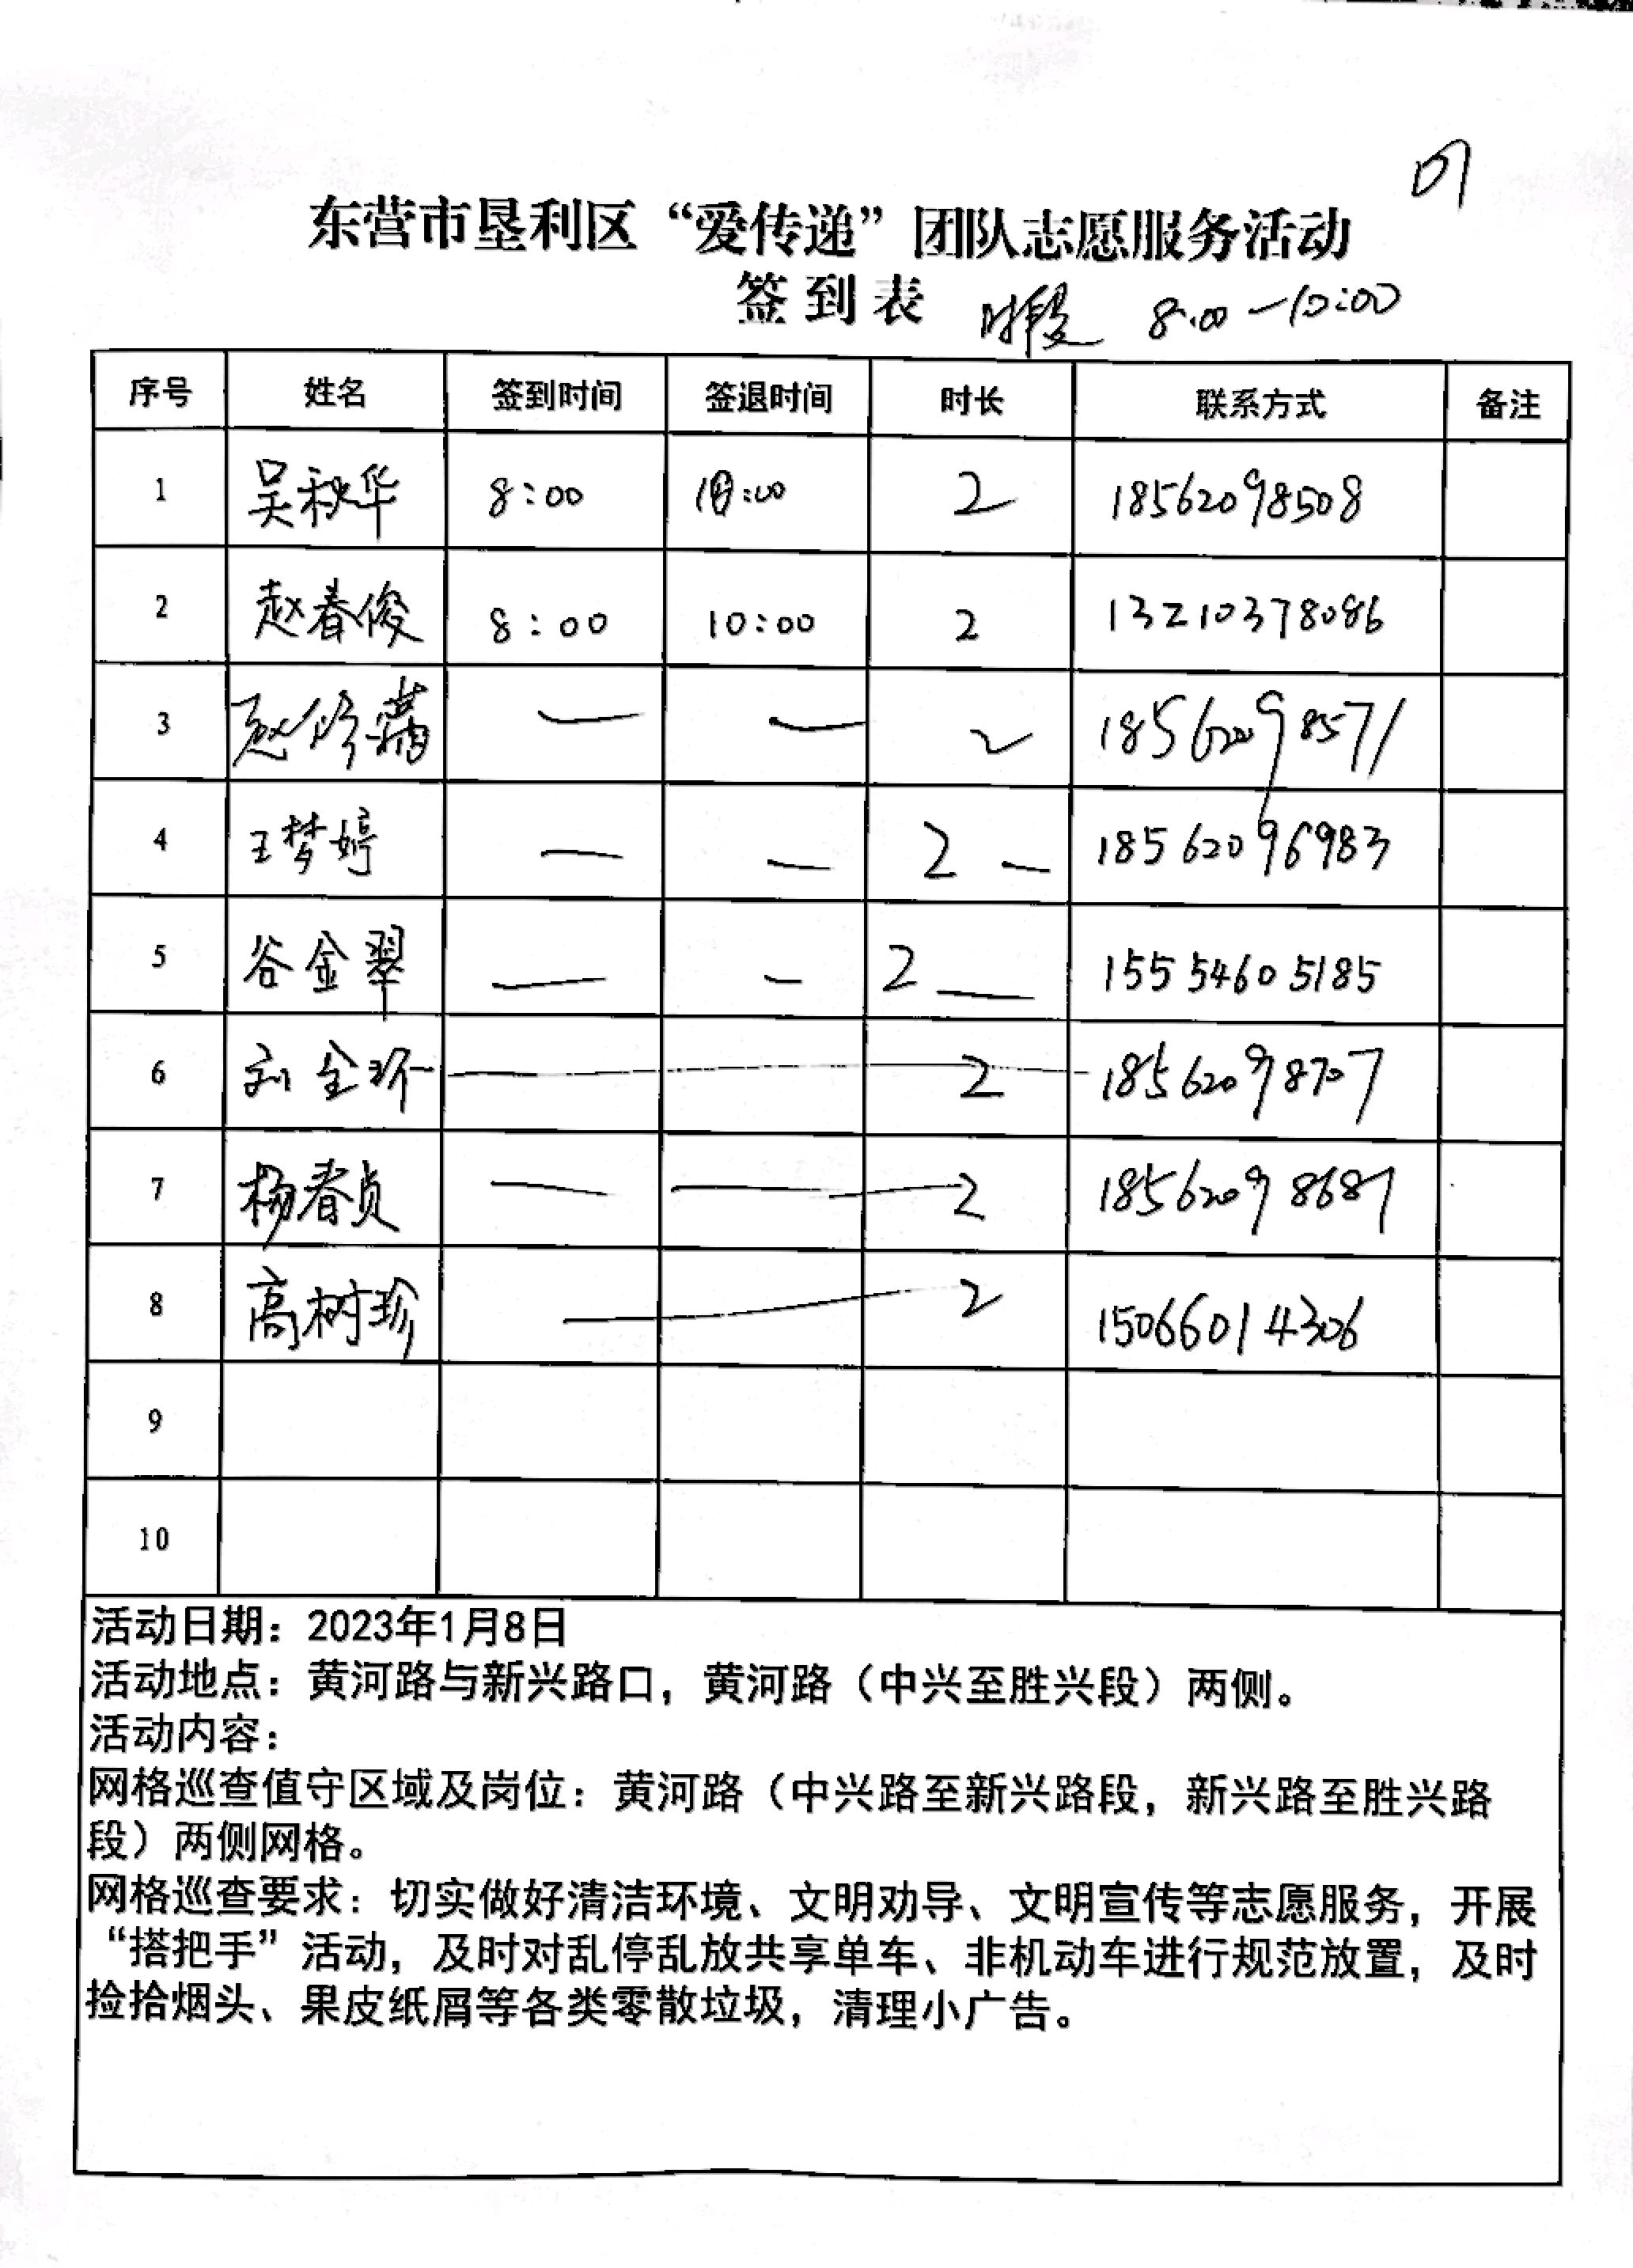 东营市垦利区“爱传递”团队志愿服务活动
签到表 时段 8:00—10:00
序号 姓名 签到时间 签退时间 时长 联系方式 备注
1 吴秋华 8:00 10:00 2 18562098508
2 赵春俊 8:00 10:00 2 13210378086
3 — — 2 18562098571
4 王梦婷 — — 2 — 18562096983
5 谷金翠 — — 2 — 15554605185
6 刘全环 — 2 — 18562098707
7 杨春贞 — — 2 18562098687
8 高树珍 — 2 15066014306
9
10
活动日期：2023年1月8日
活动地点：黄河路与新兴路口，黄河路（中兴至胜兴段）两侧。
活动内容：
网格巡查值守区域及岗位：黄河路（中兴路至新兴路段，新兴路至胜兴路
段）两侧网格。
网格巡查要求：切实做好清洁环境、文明劝导、文明宣传等志愿服务，开展
“搭把手”活动，及时对乱停乱放共享单车、非机动车进行规范放置，及时
捡拾烟头、果皮纸屑等各类零散垃圾，清理小广告。